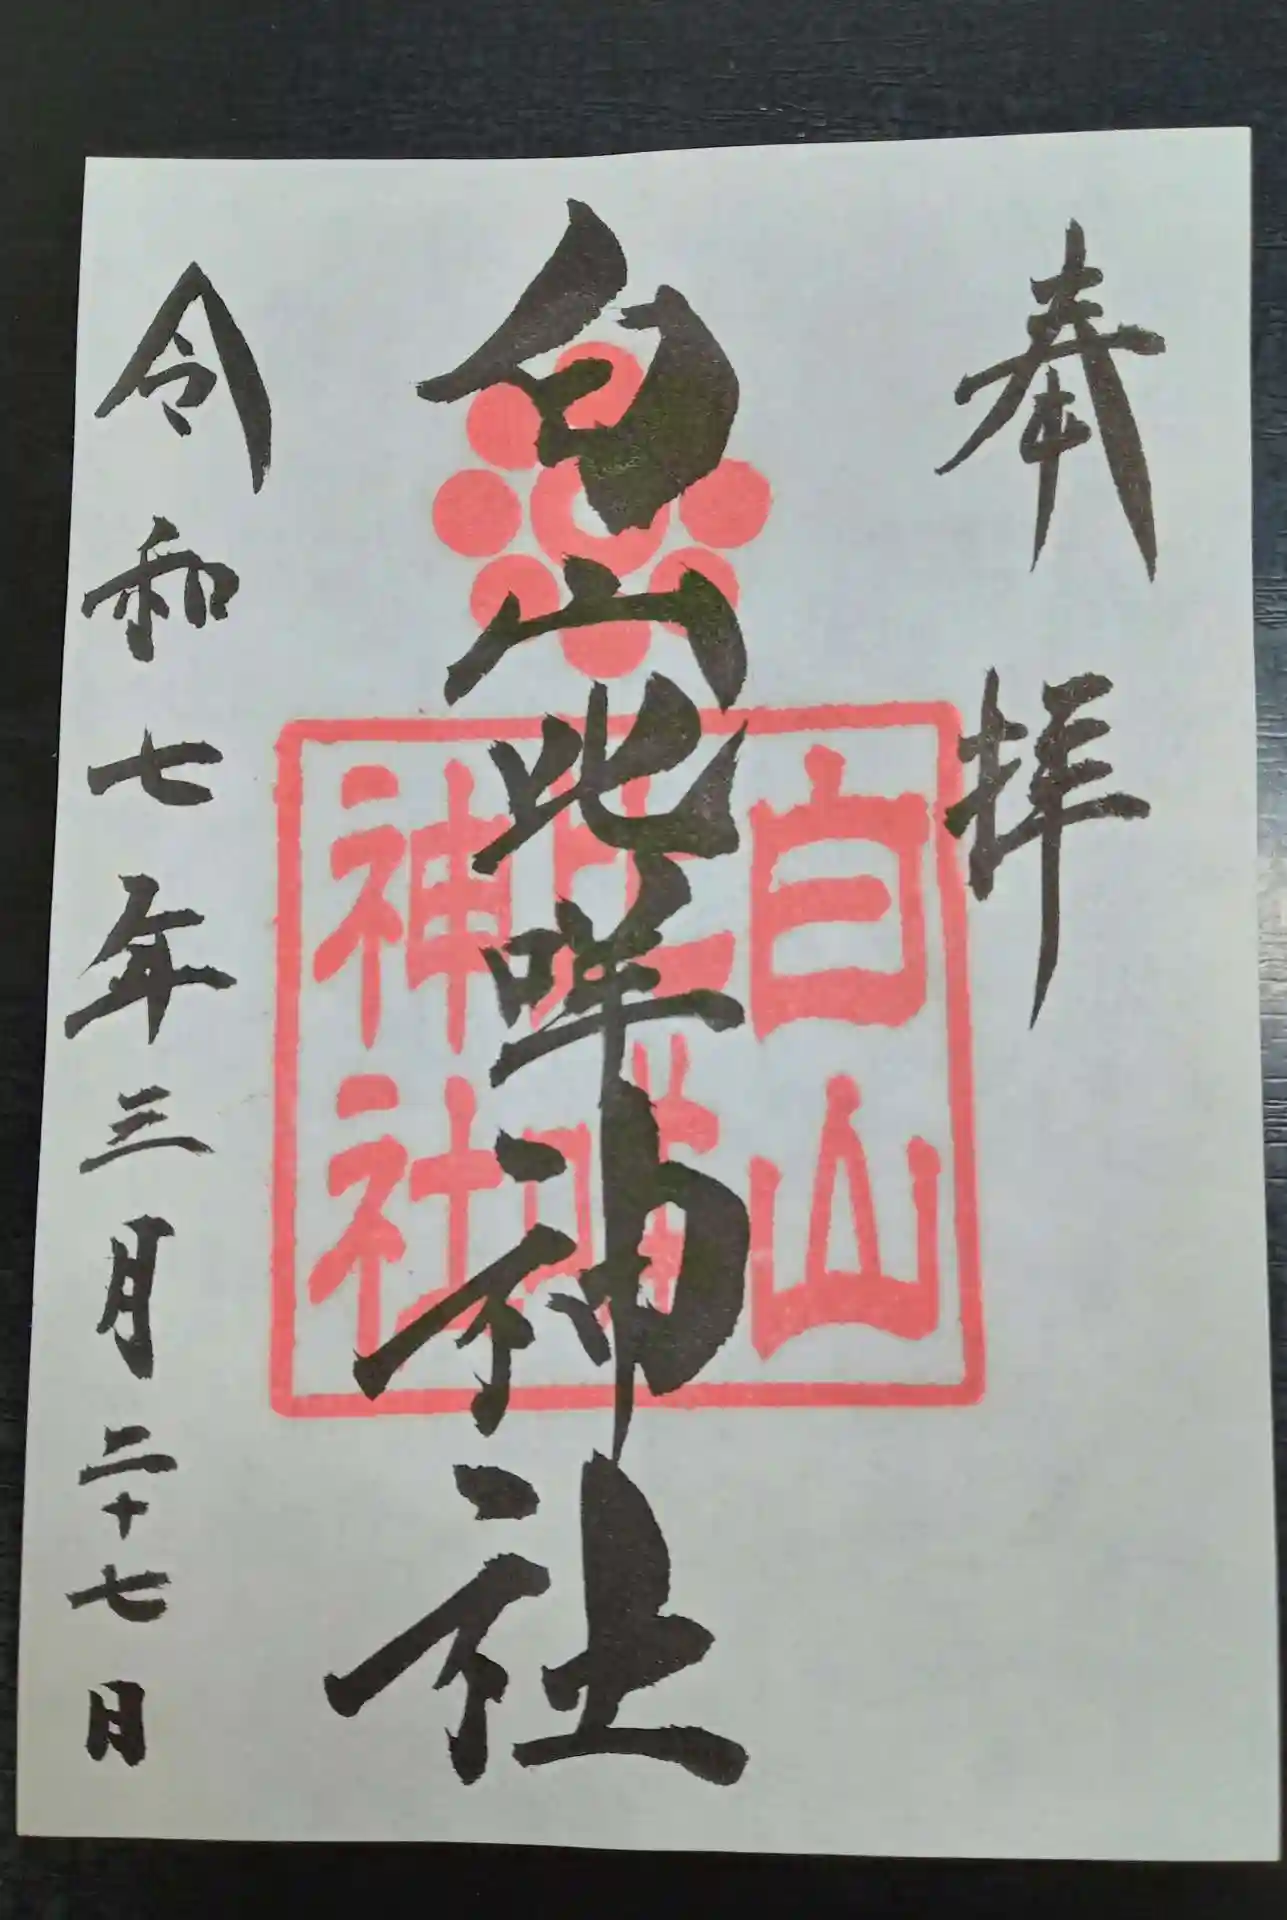 奉拝
白山比咩神社
白山
比咩
神社
令和七年三月二十七日